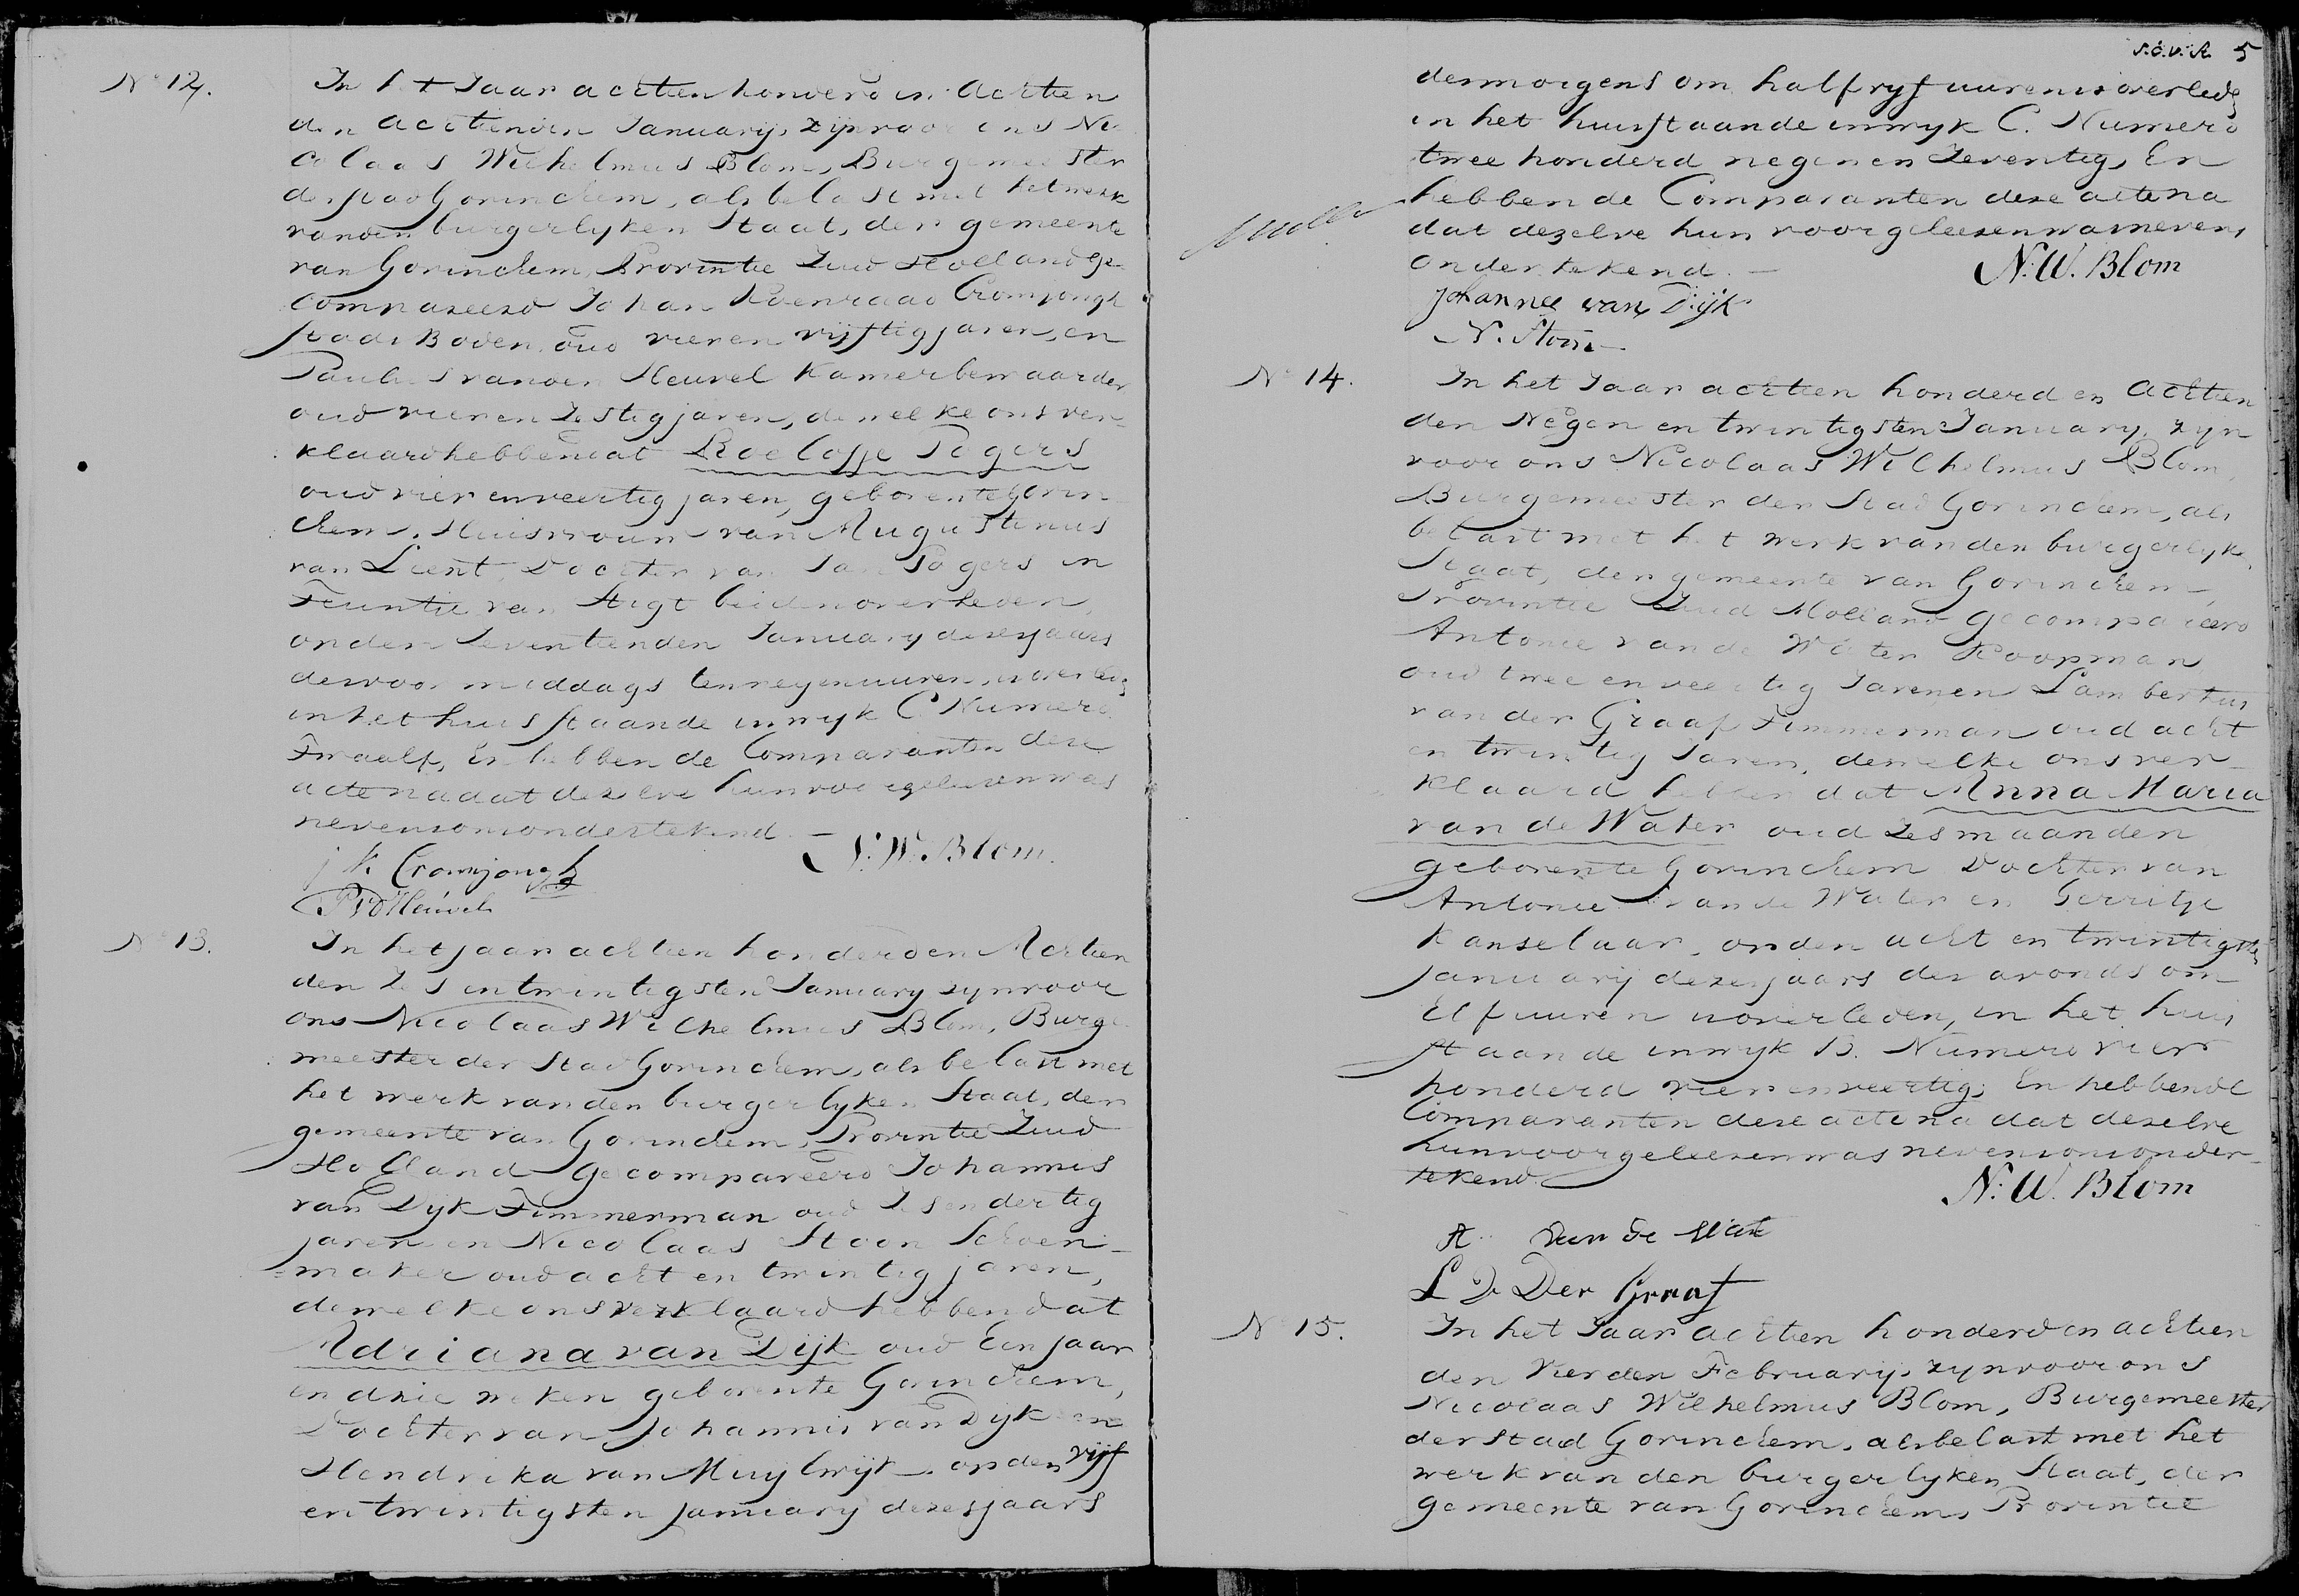 No 12.
In het Jaar achtien honderd en Achtien
den Achtienden January, zijn voor ons Ni-
colaas Wilhelmus Blom, Burgemeester
der stad Gorinchem, als belast met het werk
van den burgerlyken Staat, der gemeente
van Gorinchem, Provintie Zuid Holland ge-
compareerd Johan Koenraad Cromjongh
stads Boden oud vier en vijftig jaren, en
Paulus van den Heuvel Kamerbewaarder
oud vier en Zestig jaren, dewelke ons ver-
klaard hebben dat Roeloffje Pogers
oud vier en veertig jaren, geboren te Gorin-
chem, Huisvrouw van Augustinus
van Lient, Dochter van Jan Pogers en
Teuntie van Stigt beiden overleden,
op den Zeventienden January dezes jaars
des voor middags ten negen uuren, is overleden
in het huis staande in wyk C Numero
Twaalf, En hebben de Comparanten deze
acte na dat dezelve hun voorgeleezen was
nevens ons ondertekend. —
N. W. Blom.
J. K. Cromjongh
P v d Heuvel
No 13.
In het jaar achtien honderd en Achtien
den Zes en twintigsten January zyn voor
ons Nicolaas Wilhelmus Blom, Burge-
meester der Stad Gorinchem, als belast met
het werk van den burgerlyken Staat, der
gemeente van Gorinchem, Provintie Zuid
Holland gecompareerd Johannis
van Dyk Timmerman oud Zes en dertig
jaren en Nicolaas Stoon Schoen-
maker oud acht en twintig jaren,
dewelke ons verklaard hebben dat
Adriana van Dijk oud Een jaar
en drie weken geboren te Gorinchem,
Dochter van Johannis van Dyk en
Hendrika van Muylwijk, op den vijf
en twintigsten January dezes jaars
5
des morgens om half vyf uuren is overleden
in het huis staande in wyk C. Numero
twee honderd negen en Zeventig, En
hebben de Comparanten deze acte na
dat dezelve hun voorgeleezen was nevens
ondertekend. —
N. W. Blom
Johannes van Dijk
N. Stoon
No 14.
In het Jaar achtien honderd en Achtien
den Negen en twintigsten January, zyn
voor ons Nicolaas Wilhelmus Blom,
Burgemeester der Stad Gorinchem, als
belast met het werk van den burgerlyken
Staat, der gemeente van Gorinchem,
Provintie Zuid Holland gecompareerd
Antonie van de Water Koopman
oud twee en veertig Jaren en Lambertus
van der Graaf Timmerman oud acht
en twintig Jaren, dewelke ons ver-
klaard hebben dat Anna Maria
van de Water oud Zes maanden
geboren te Gorinchem Dochter van
Antonie van de Water en Gerritje
Kanselaar, op den acht en twintigsten
January dezes jaars des avonds om
Elf uuren is overleden, in het huis
staande in wyk B. Numero vier
honderd vier en veertig, En hebben de
Comparanten deze acte na dat dezelve
hun voorgeleezen was nevens ons onder-
tekend.
N. W. Blom
A. van de Wat
L v Der Graaf
No 15.
In het Jaar achtien honderd en achtien
den Vierden February, zyn voor ons
Nicolaas Wilhelmus Blom, Burgemeester
der stad Gorinchem, als belast met het
werk van den burgerlyken Staat, der
gemeente van Gorinchem, Provintie